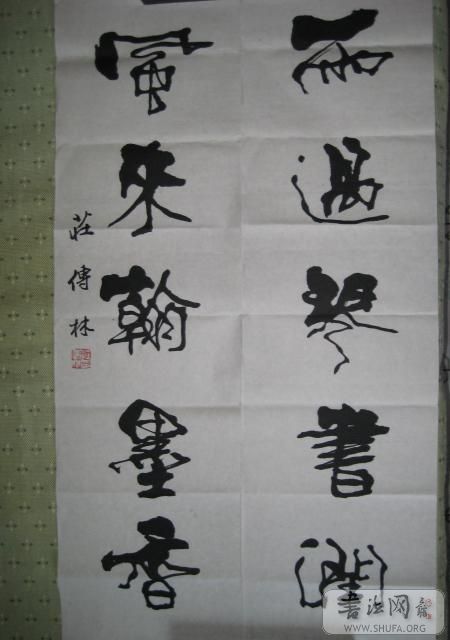 雨過琴書潤
風來翰墨香
莊傳林
書法网
WWW.SHUFA.ORG